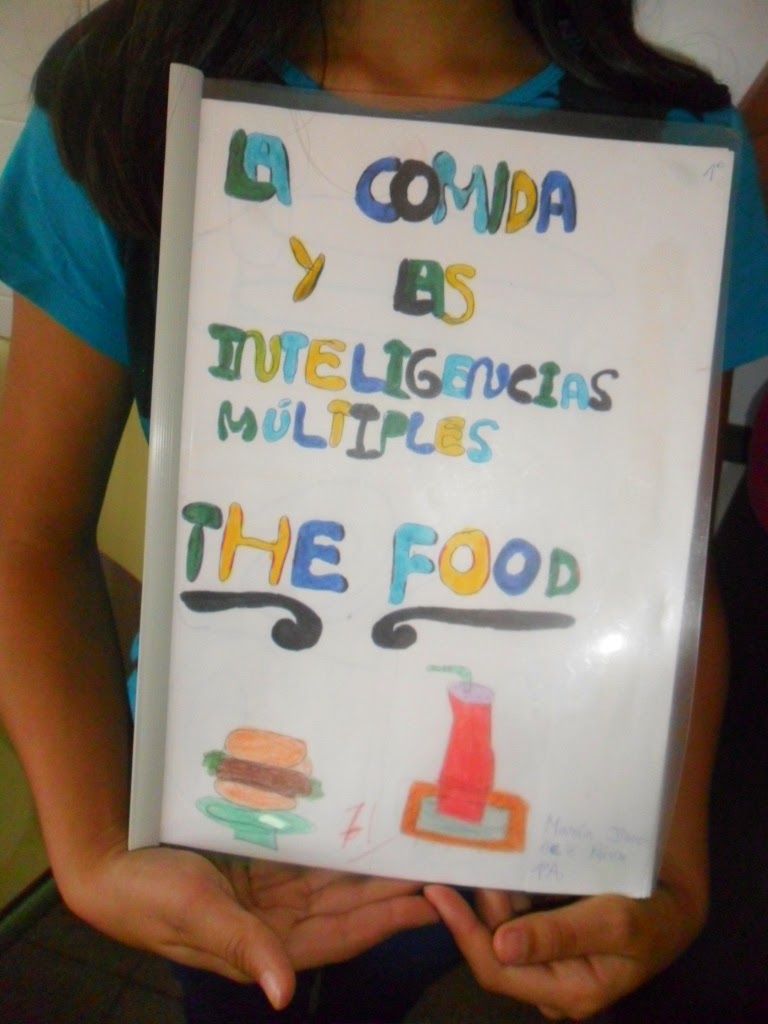 1º
LA COMIDA
Y LAS
INTELIGENCIAS
MÚLTIPLES
THE FOOD
María
1ºA